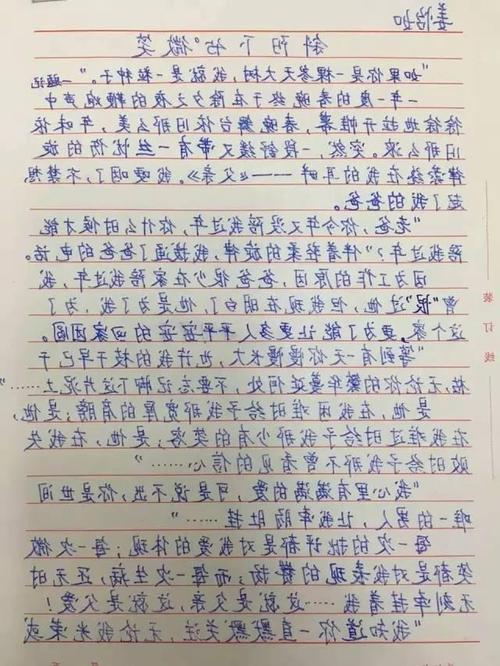 姜怡如
斜阳下也°微笑
"如果你是一棵参天大树,我就是一粒种子。"——题记
一年一度的春晚终于在除夕之夜的鞭炮声中
徐徐地拉开帷幕,春晚舞台依旧那么美,年味依
旧那么浓。突然。一段舒缓又带有一丝忧伤的旋
律萦绕在我的耳畔——《父亲》。我哽咽了,不禁想
起了我的爸爸。
"老爸,你今年又没陪我过年,你什么时候才能
陪我过年?"伴着轻柔的旋律,我拨通了爸爸的电话。
因为工作的原因,爸爸很少在家陪我过年,我
曾"恨"过他,但我现在明白了,他是为了我,为了
这个家。更为了能让更多人平平安安的回家团圆。
"等到有一天你慢慢长大,也许我的枝干早已干
枯无论你的繁华蔓延何处,不要忘记脚下这片泥土……"
是他,在我困难时给予我那宽厚的肩膀;是他,
在我难过时给予我那少有的笑容;是,他,在我失
败时给予我那不曾看见的信心……"
"我心里有满满的爱,可是说不出,你是世间
唯一的男人,让我牵肠肚挂……"
每一次的批评都是对我爱的体现;每一次微
笑都是对我表现的赞扬;而每一次生病,还无时
无刻牵挂着我……这就是父亲,这就是父爱!
"我知道你一直默默关注,无论我光荣或
装订线